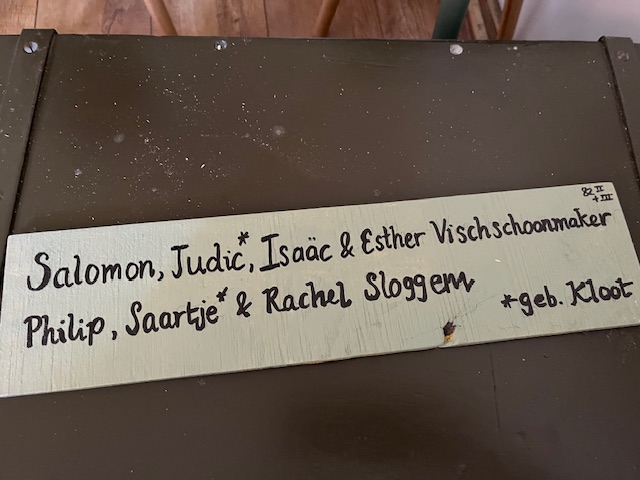 82 II
+ III
Salomon, Judic*, Isaäc & Esther Vischschoonmaker
Philip, Saartje* & Rachel Sloggem
*geb. Kloot